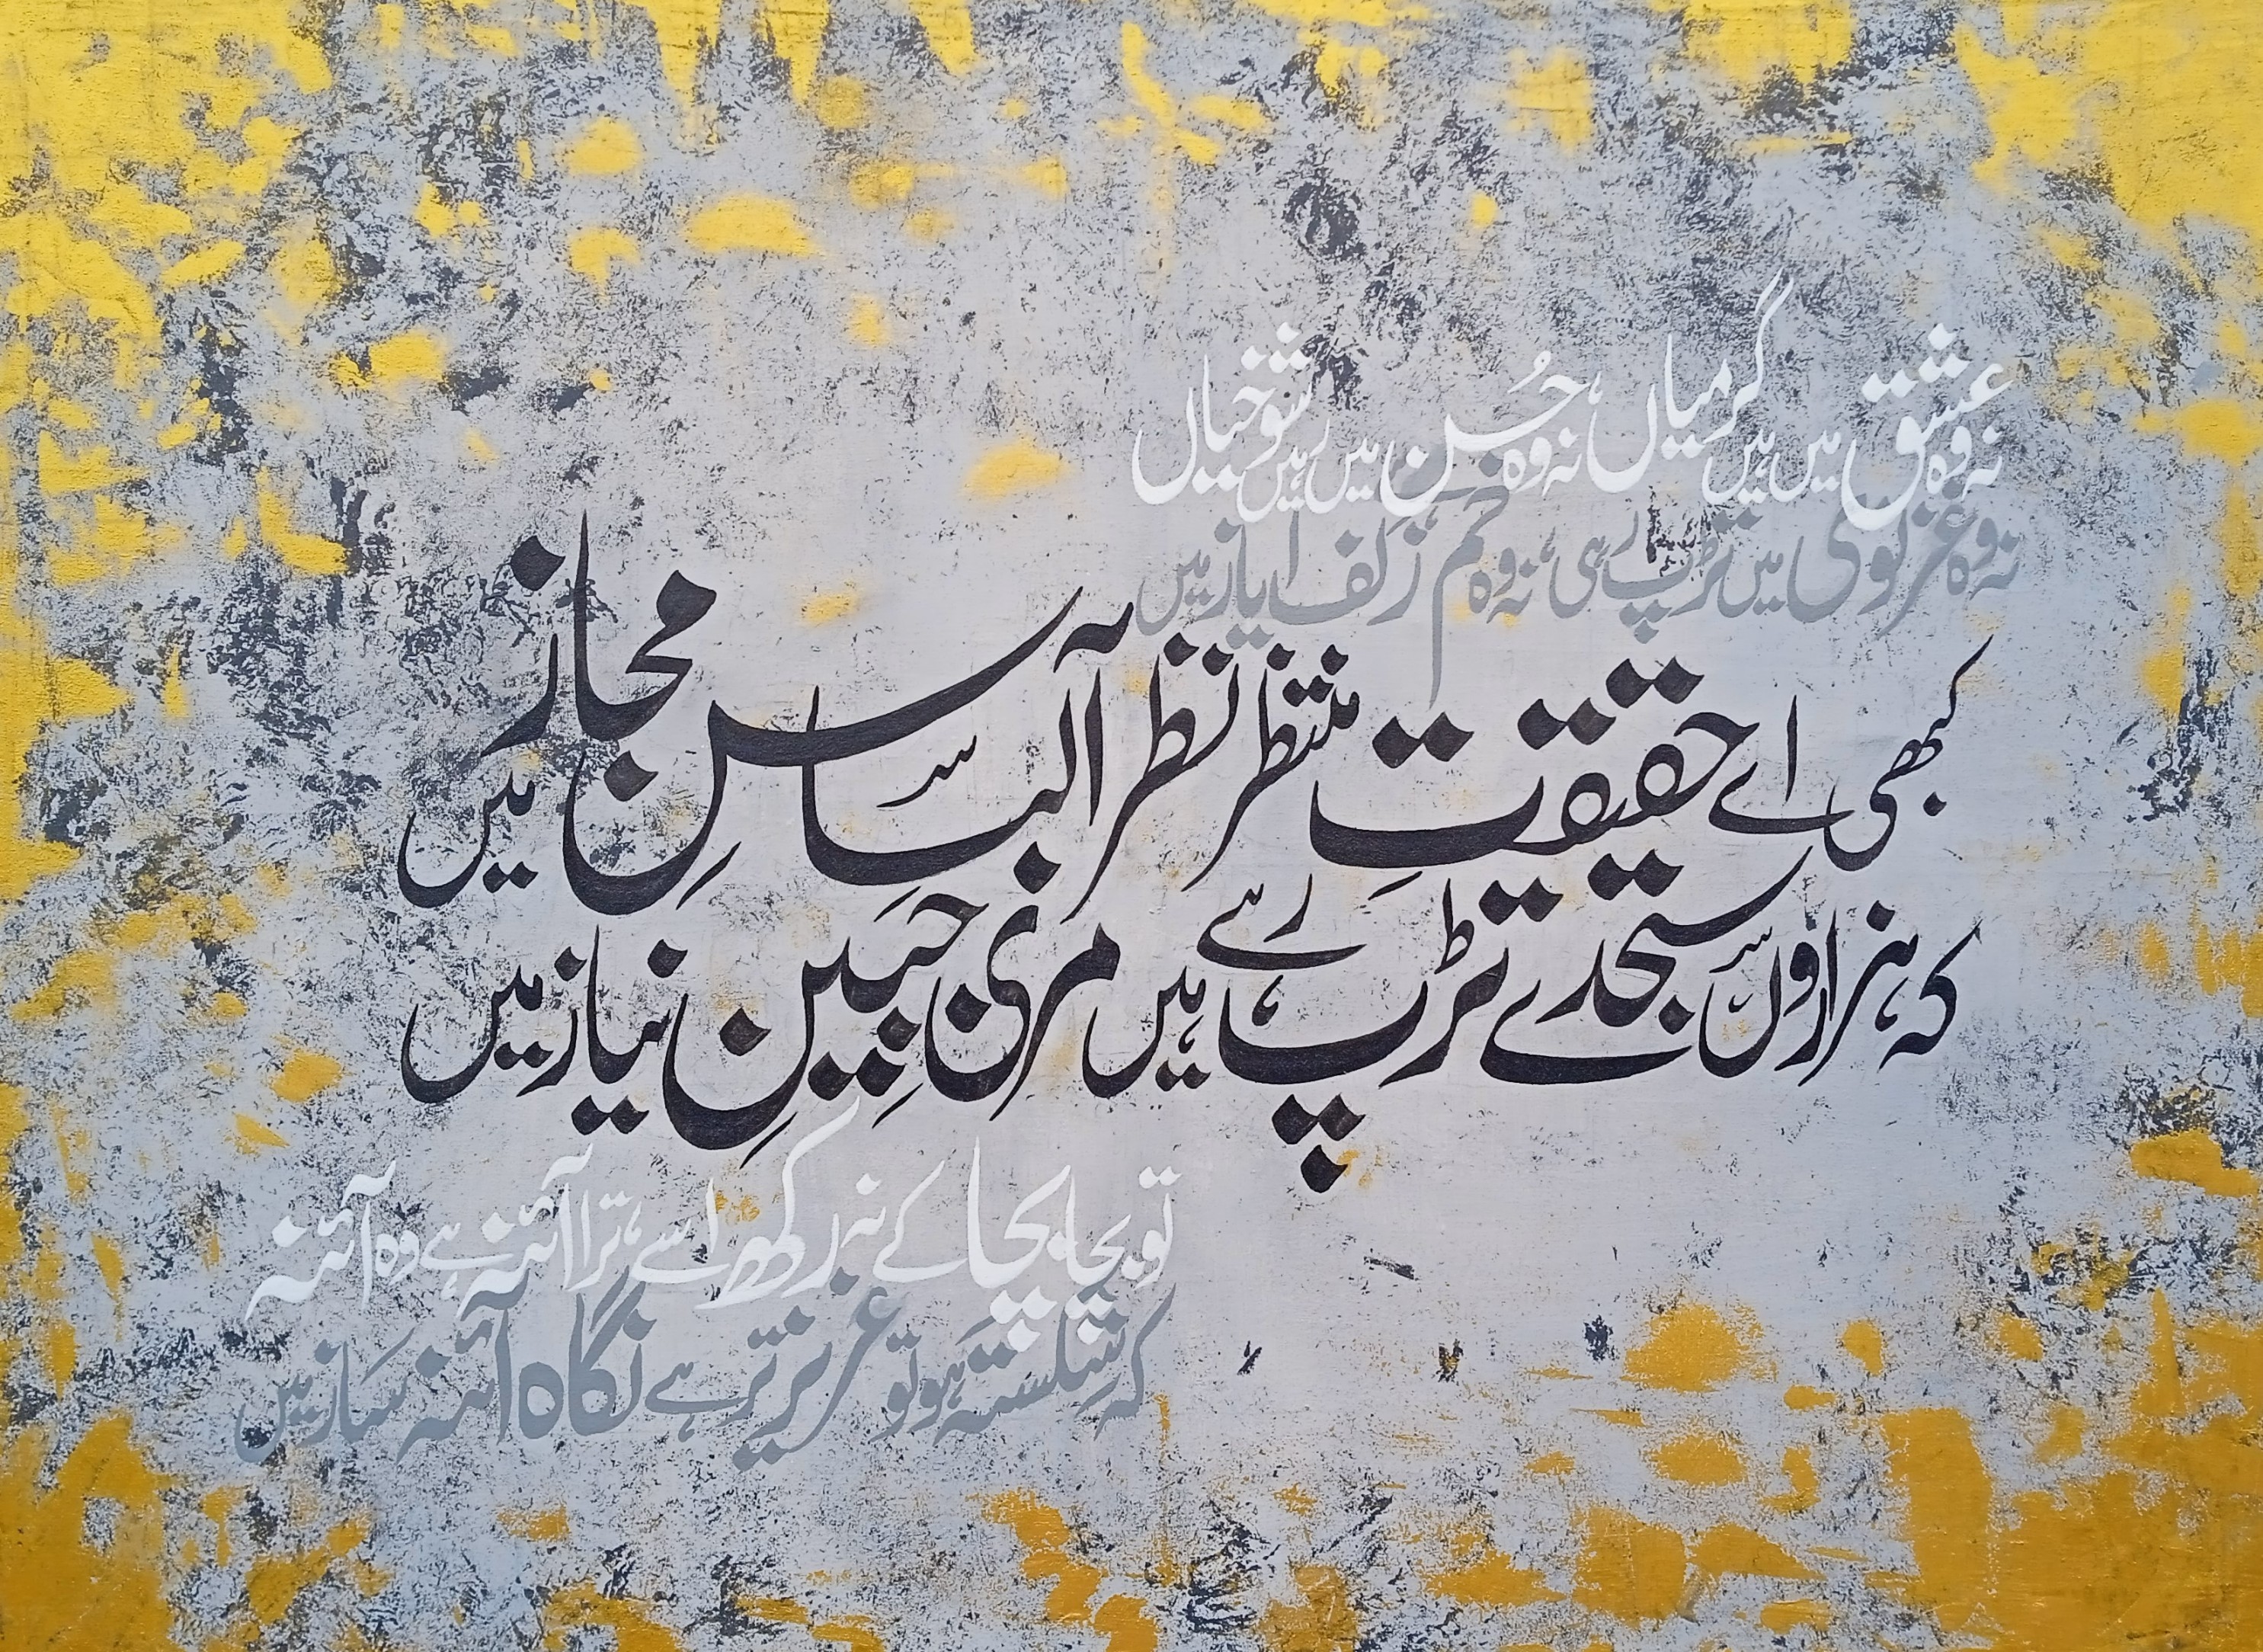 نہ وہ عشق میں رہیں گرمیاں نہ وہ حُسن میں رہیں شوخیاں
نہ وہ غزنوی میں تڑپ رہی، نہ وہ خم ہے زلف ایاز میں
کبھی اے حقیقتِ منتظر نظر آ لباسِ مجاز میں
کہ ہزاروں سجدے تڑپ رہے ہیں مری جبینِ نیاز میں
تو بچا بچا کے نہ رکھ اسے، ترا آئنہ ہے وہ آئنہ
کہ شِکستہ ہو تو عزیز تر ہے نگاہ آئنہ ساز میں